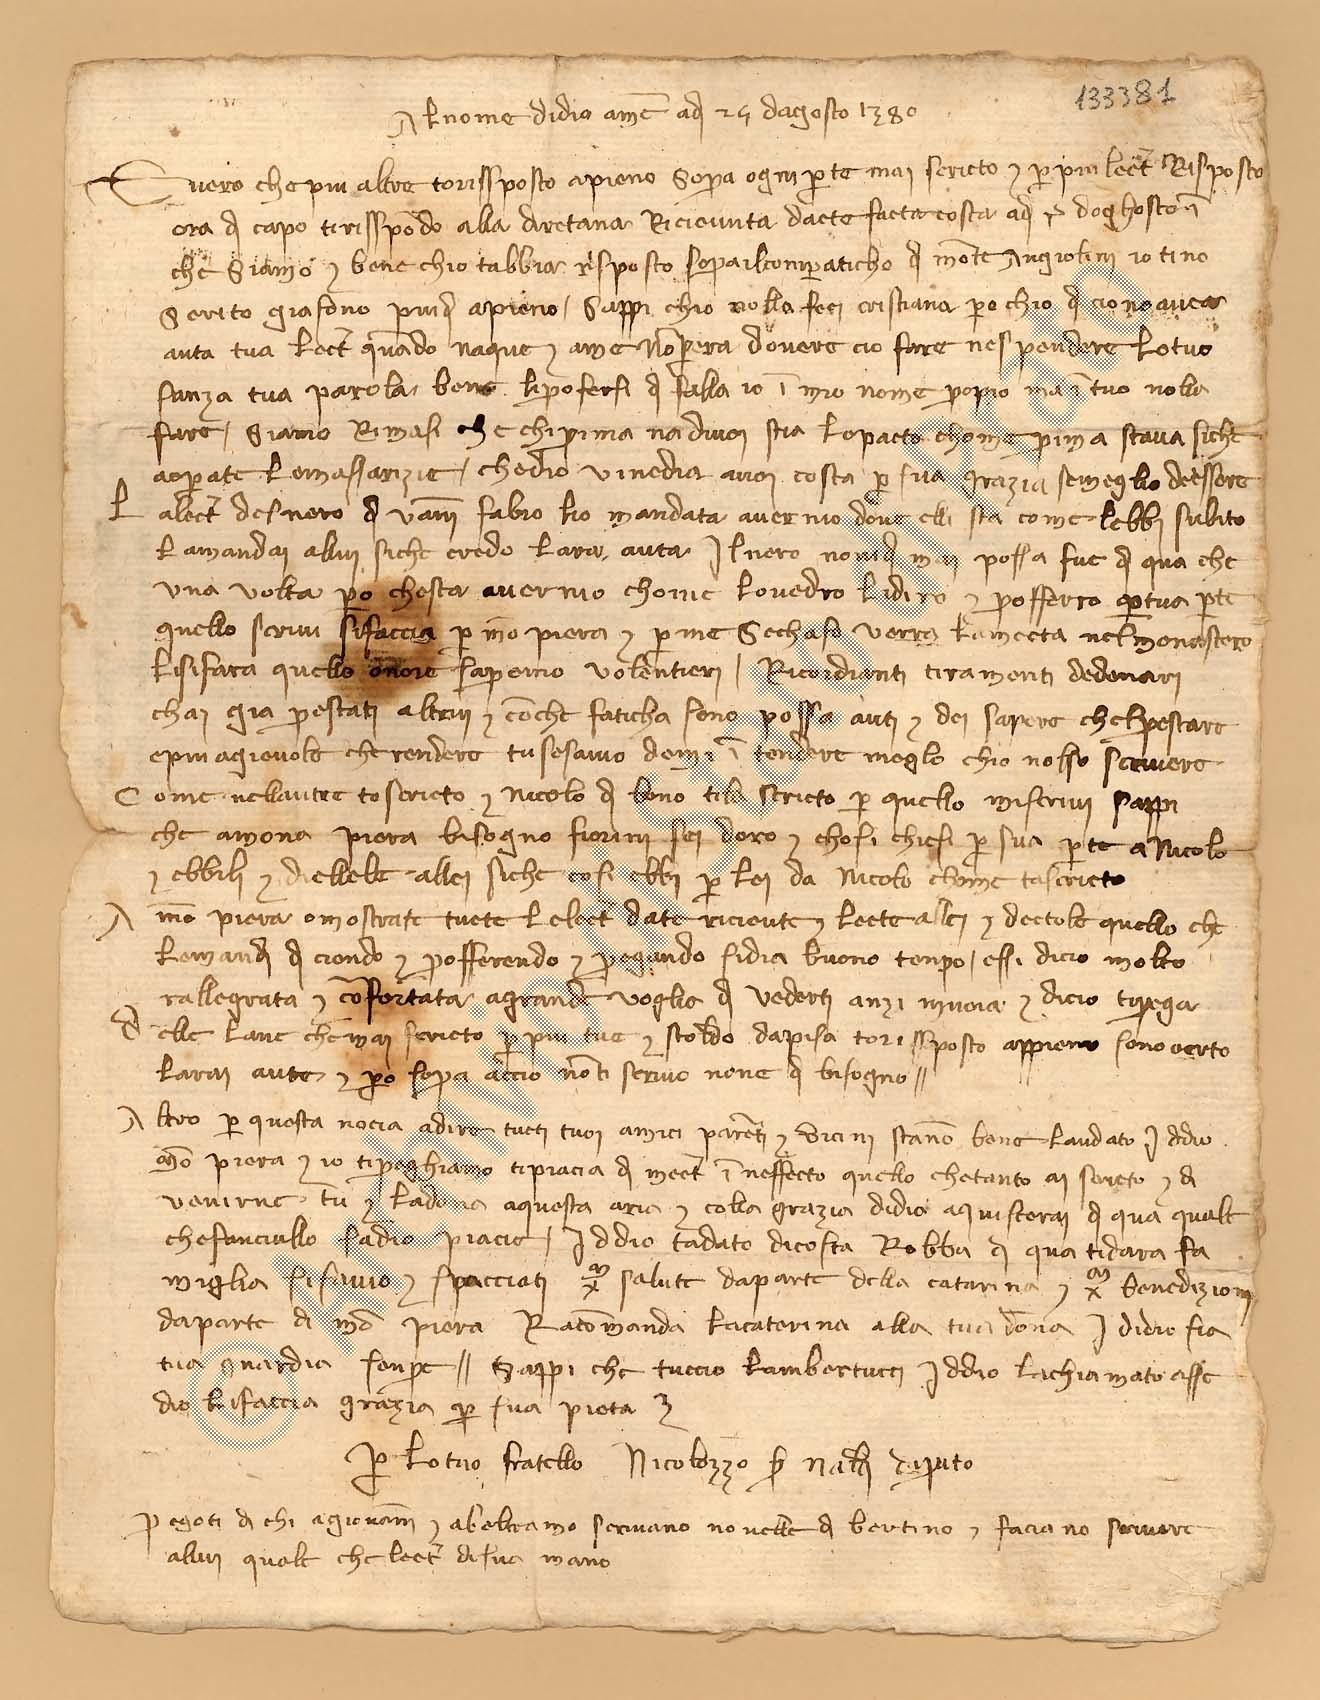 133381
Al nome di dio amē adi 25 dagosto 1380
E vero che piu altre to rissposto apieno sopra ogni parte mai scricto e per piu lect. Rissposto
ora di capo ti risspōdo alla diretana Riceuuta da te facta costa adi doghosto ī
che siamo e bene chio tabbia risposto sopra il comparaticho di mōte Angiolini io tino
scrito apieno / Sappi chio nolla feci cristiana per chio di cio no auea
auta tua lect. quādo naque e a me nō pera douere cio fare ne spendere lo tuo
sanza tua parola bene li profersi di falla io ī mio nome propio ma ī tuo nolla
fare / siamo Rimasi che chi prima na diuoi stia lo pacto chome prima staua siche
aparate le massarizie / che dio vi ne dia auoi costa per sua grazia se meglio de essere
La lect. del nero di vāni fabro lio mandata auernio doue elli sta come lebbi subito
la mandai allui siche credo lara auta Il nero no uidi mai possa fue di qua che
una volta pero chesta auernio chome lo uedro li diro e profferro per tua parte
quello scriui si faccia per mō piera e per me Se chaso verra la mecta nel monastero
li si fara quello onore sapremo volentieri / Ricordianti ti ramenti de denari
chai gia prestati altrui e cō che faticha sono possa auti e dei sapere chel prestare
e piu ageuole che rendere tu se sauio domi ī tendere meglo chio nol so scriuere
Come nellautre to scricto e nicolo di bono tila scricto per quello mi scriui sappi
che a mona piera bisogno fiorini sei doro e chosi chiesi per sua parte a Nicolo
e ebbili e diellele allei siche cosi ebbi per lei da Nicolo chome ta scricto
A mō piera o mostrate tucte le lect. da te riceute e lecte allei e dectole quello che
le mandi diciendo e profferendo e pregando si dia buono tenpo / essi di cio molto
rallegrata e cōfortata a grande voglia di vederti anzi muoia e di cio ti prega
Delle lane che mai scricto per piu tue e stoldo da pisa to rissposto appieno sono certo
larai aute e pero sopra accio nō ti scriuo none di bisogno //
Altro per questa nocia adire tucti tuoi amici parēti e vicini stanō bene laudato Iddio
Mō piera e io ti preghiamo ti piacia di mect. ī neffecto quello che tanto ai scricto e di
venirne tu e la dōna a questa aria e colla grazia di dio aquisterai di qua qualc
che fanciullo sa dio piacie / Iddio ta dato di costa Robba di qua ti dara fa
miglia si sauio e spacciati salute da parte della catarina e benedizioni
da parte di mō piera Racōmanda la catarina alla tua dōna Iddio sia
tua guardia senpre // Sappi che tuccio lambertucci Iddio la chiamato asse
dio li faccia grazia per sua pieta
Per lo tuo fratello Nicolozzo di ser naldi di prato
Pregoti di chi a giouāni e a beltramo scriuano nouelle di bertino e faciano scriuere
allui qualc che lect. di sua mano